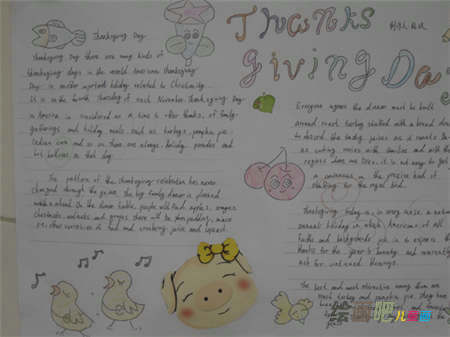 Thanksgiving Day
Thanksgiving Day there are many kinds of
thanksgiving days in the world American thanksgiving
Day is another important holiday related to Christianity
is on the fourth Thursday of each November thanksgiving Day
in America is considered as a time to offer thanks, of family
gatherings and holiday meals such as turkeys, pumpkin pie
Indian corn and so on there are always holiday parades and
on that day.
The pattern of the thanksgiving celebration has never
changed through the years. The big family dinner is planned
months ahead. On the dinner table, people will find apples, oranges
chestnuts, walnuts and grapes, there will be plum pudding, mince
pie other varieties of food and cranberry juice and
Thanks
giving Da
Everyone agrees the dinner must be built
around roast turkey stuffed with a bread
to absorb the tasty juices as it roasts
as cooking varies with families and with the
regions one lives, it is not easy to get
a consensus on the precise kind of
stuffing for the royal bird.
Thanksgiving today is, in every sense, a
annual holiday on which Americans of all
faiths and backgrounds join in to express
thanks for the year's bounty and reverently
ask for continued blessings.
The best and most attractive among them are
roast turkey and pumpkin pie. they have
绘画吧